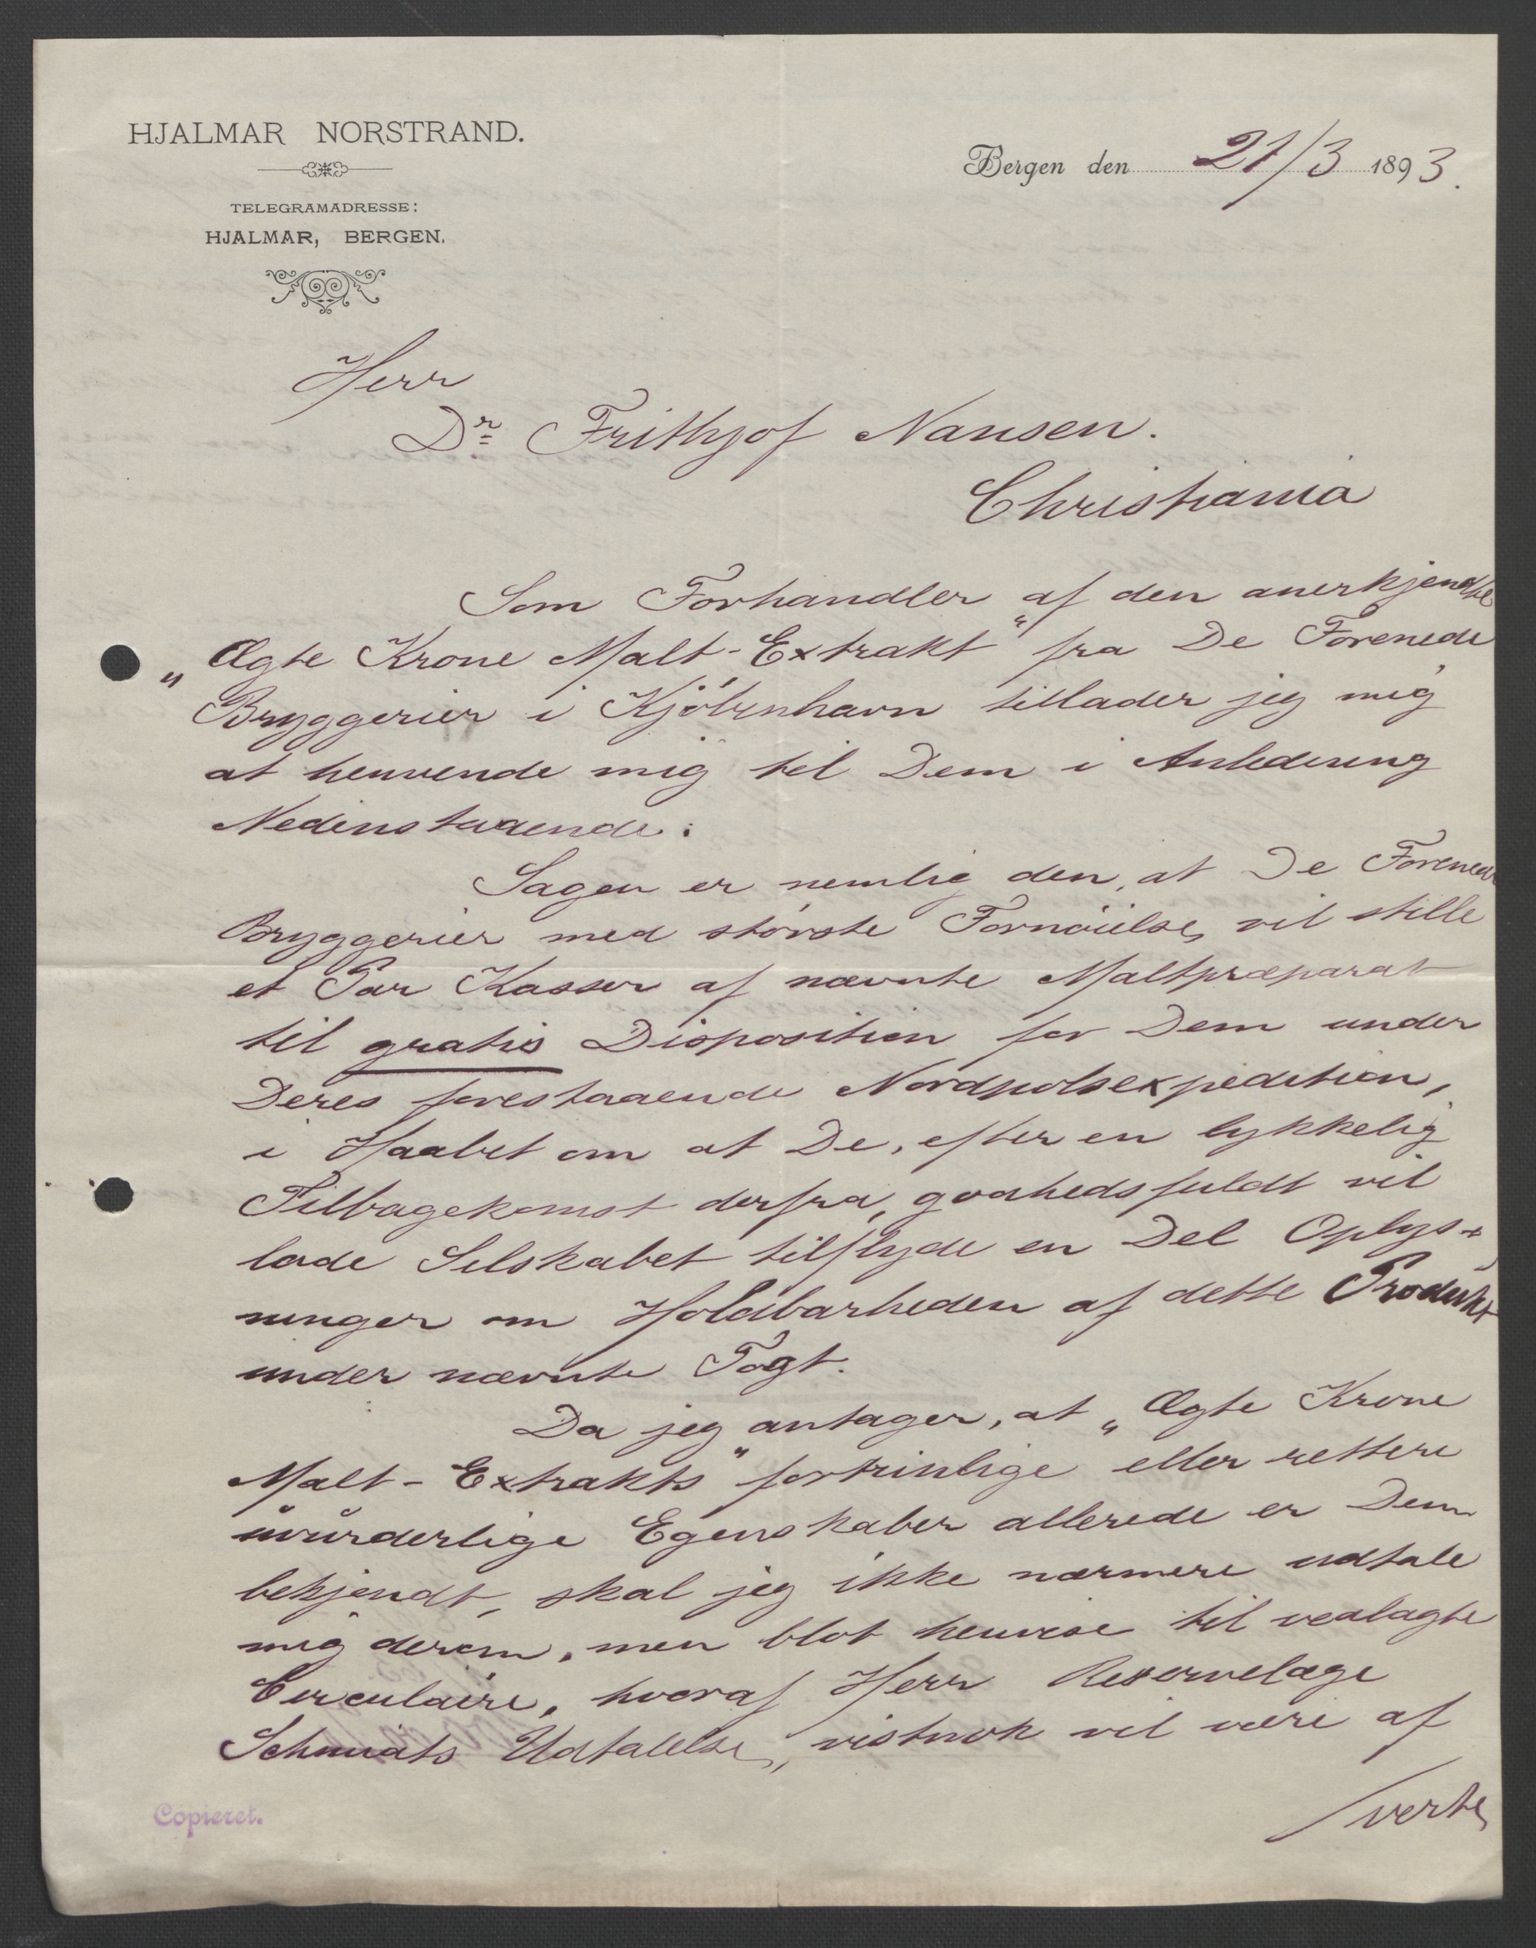 HJALMAR NORSTRAND.
TELEGRAMADRESSE:
HJALMAR, BERGEN.
Bergen den 21/3 1893.
Herr
Dr Frithjof Nansen.
Christiania
Som Forhandler af den anerkjendte
„Ægte Krone Malt-Extrakt“ fra De Forenede
Bryggerier i Kjöbenhavn tillader jeg mig
at henvende mig til Dem i Anledning
Nedenstaaende:
Sagen er nemlig den, at De Forenede
Bryggerier med störste Fornöielse vil stille
et Par Kasser af nævnte Maltpræparat
til gratis Disposition for Dem under
Deres forestaaende Nordpolsexpedition,
i Haabet om at De, efter en lykkelig
Tilbagekomst derfra, godhedsfuldt vil
lade Selskabet tilflyde en Del Oplys-
ninger om Holdbarheden af dette Produkt
under nævnte Togt.
Da jeg antager, at „Ægte Krone
Malt-Extrakts“ fortrinlige eller rettere
uvurderlige Egenskaber allerede er Dem
bekjendt, skal jeg ikke nærmere udtale
mig derom, men blot henvise til vedlagte
Circulaire, hvoraf Herr Reservelæge
Schmidts Udtalelse, vistnok vil være af
/verte
Copieret.